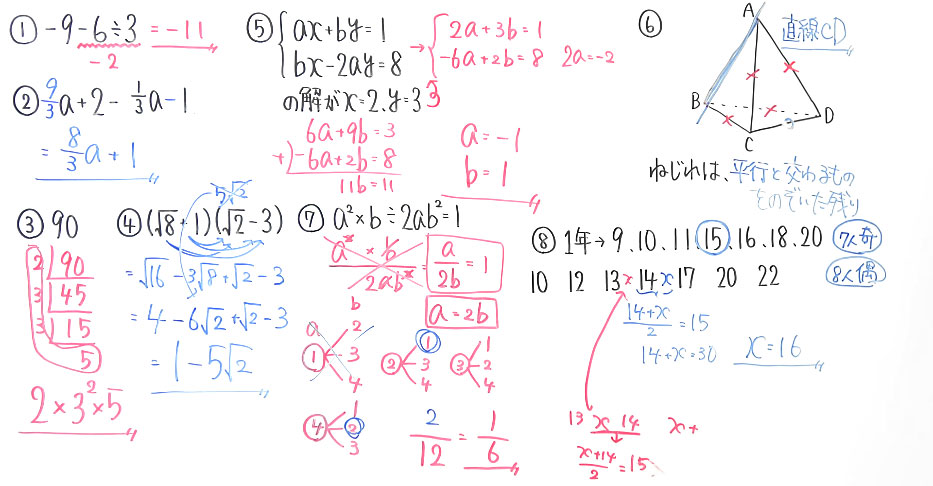 ① -9-6÷3 = -11
-2
② 9/3 a+2- 1/3 a-1
= 8/3 a+1
③ 90
2 | 90
3 | 45
3 | 15
5
2×3²×5
④ (√8+1)(√2-3)
5√2
=√16-3√8+√2-3
=4-6√2+√2-3
=1-5√2
⑤ { ax+by=1
bx-2ay=8
→ { 2a+3b=1
-6a+2b=8 2a=-2
の解がx=2、y=3 3
6a+9b=3
+)-6a+2b=8
11b=11
a=-1
b=1
⑥ 直線CD
A
B
C
D
3
ねじれは、平行と交わるもの
をのぞいた残り
⑦ a²×b÷2ab²=1
a²×b / 2ab² = a/2b = 1
b
a=2b
a
① 2 3 4
② 1 3 4
③ 1 2 4
④ 1 2 3
2/12 = 1/6
⑧ 1年→9、10、11 15、16、18、20 7人奇
10 12 13 x 14 x 17 20 22 8人偶
14+x / 2 =15
14+x=30 x=16
13 x 14 x+
x+14 / 2 =15